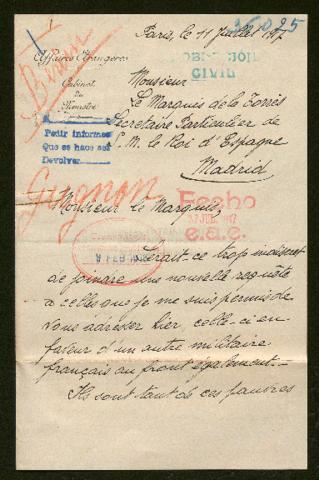 Paris, le 11 Juillet 1917
Affaires Etrangères
Cabinet
du
Ministre
CIVIL
Monsieur
Le Marquis de la Torre
Secrétaire Particulier de
S. M. le Roi d'Espagne
Madrid
Pedir informes
Que se hace así
Devolver
Gugnon
Fecho
JUL. 1917
c.a.c.
Monsieur le Marquis,
9 FEB 1918
Serait ce trop indécent
de joindre une nouvelle requête
à celles que je me suis permis de
vous adresser hier, celle-ci en
faveur d'un autre militaire
français au front également.—
Ils sont tant de ces pauvres